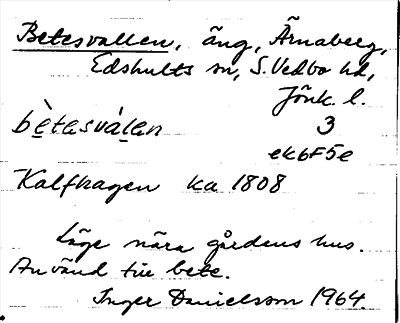 Betesvallen, äng, Ärnaberg,
Edshults sn, S. Vedbo hd,
Jönk. l.
bètasválan 3
ek6F5e
Kalfhagen ka 1808
Läge nära gårdens hus.
Använd till bete.
Inger Danielsson 1964